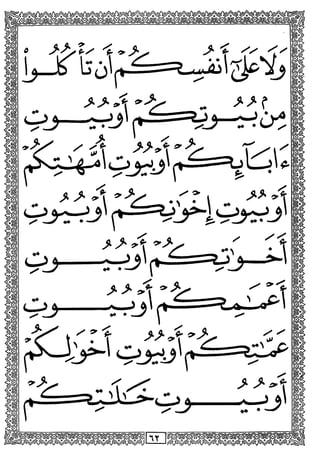 وَلَا عَلَىٰٓ أَنفُسِكُمْ أَن تَأْكُلُوا۟
مِنۢ بُيُوتِكُمْ أَوْ بُيُوتِ
ءَابَآئِكُمْ أَوْ بُيُوتِ أُمَّهَٰتِكُمْ
أَوْ بُيُوتِ إِخْوَٰنِكُمْ أَوْ بُيُوتِ
أَخَوَٰتِكُمْ أَوْ بُيُوتِ
أَعْمَٰمِكُمْ أَوْ بُيُوتِ
عَمَّٰتِكُمْ أَوْ بُيُوتِ أَخْوَٰلِكُمْ
أَوْ بُيُوتِ خَٰلَٰتِكُمْ
٦٢